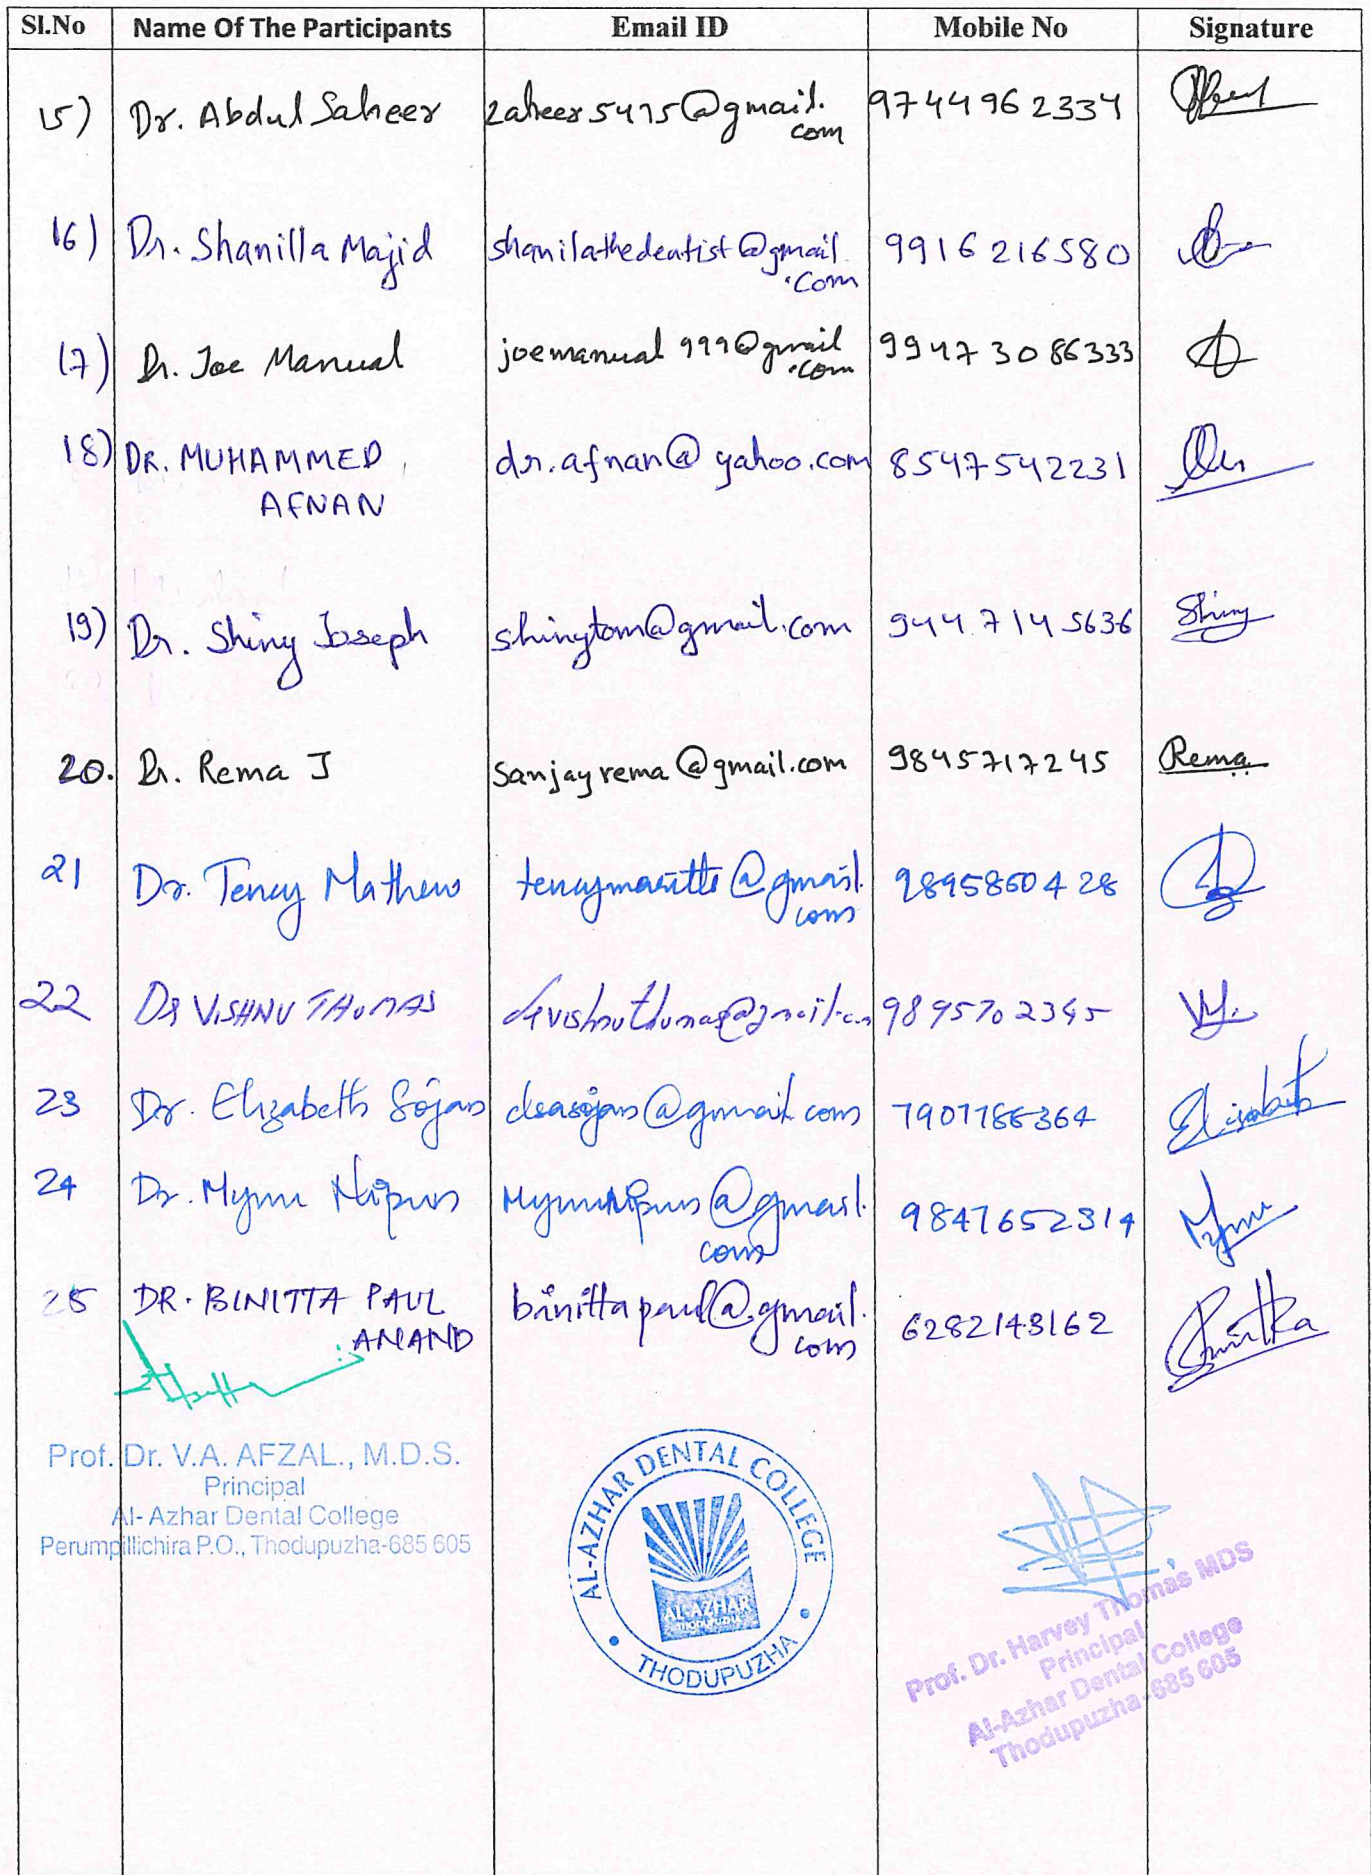 Sl.No Name Of The Participants Email ID Mobile No Signature
15) Dr. Abdul Saheer zaheer5475@gmail. 9744962334
com
16) Dr. Shanilla Majid shanilathedentist@gmail 9916216580
.com
17) Dr. Joe Manual joemanual999@gmail 99473086333
.com
18) DR. MUHAMMED dr.afnan@yahoo.com 8547542231
AFNAN
19) Dr. Shiny Joseph shinytom@gmail.com 9447145636 Shiny
20. Dr. Rema J sanjayrema@gmail.com 9845717245 Rema
21 Dr. Tency Mathew @gmail. 9895860428
com
22 Dr VISHNU THOMAS drvishnuthomas@gmail.com 9895702345
23 Dr. Elizabeth Sojan @gmail.com 7907786364 Elizabeth
24 Dr. Mymu Nipun Mymunipun@gmail. 9847652314 Mymu
com
25 DR. BINITTA PAUL binittapaul@gmail. 6282143162 Binitta
ANAND com
Prof. Dr. V.A. AFZAL., M.D.S.
Principal
Al- Azhar Dental College
Perumpillichira P.O., Thodupuzha-685 605
AL-AZHAR DENTAL COLLEGE
AL-AZHAR
THODUPUZHA
THODUPUZHA
Prof. Dr. Harvey Thomas MDS
Principal
Al-Azhar Dental College
Thodupuzha-685 605